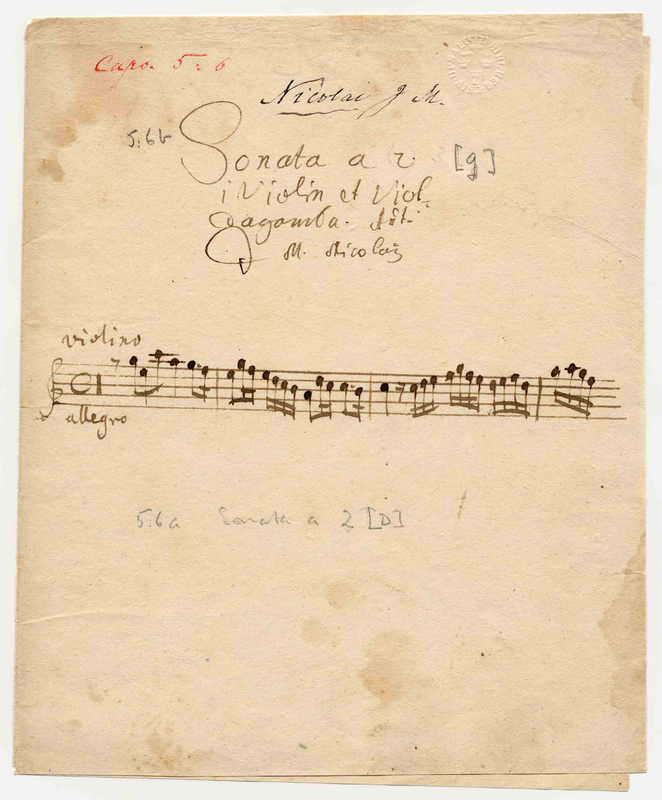 Capo. 5:6
Nicolai J M.
5:6b
Sonata a 2. [g]
1 Violin et Viol.
Dagamba.
M. Nicolai
violino
allegro
5:6a Sonata a 2 [D]